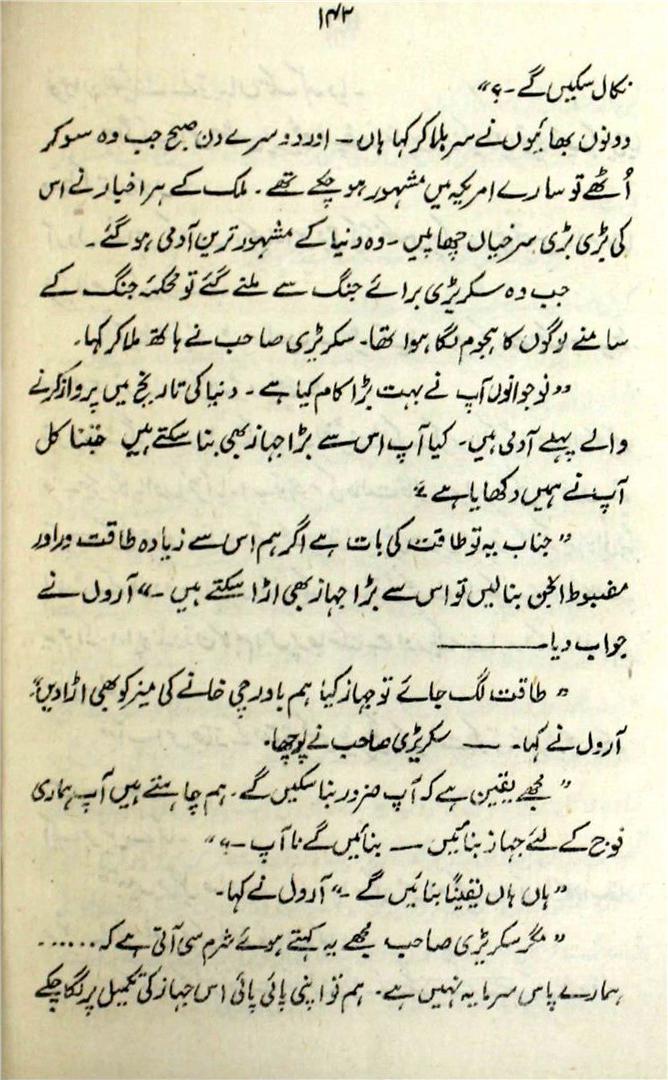 ۱۴۳
نکال سکیں گے۔؟"
دونوں بھائیوں نے سر ہلا کر کہا ہاں — اور دوسرے دن صبح جب وہ سو کر
اُٹھے تو سارے امریکہ میں مشہور ہو چکے تھے۔ ملک کے ہر اخبار نے اس
کی بڑی بڑی سرخیاں چھاپیں۔ وہ دنیا کے مشہور ترین آدمی ہو گئے۔
جب وہ سکریڑی برائے جنگ سے ملنے گئے تو محکمۂ جنگ کے
سامنے لوگوں کا ہجوم لگا ہوا تھا۔ سکرٹری صاحب نے ہاتھ ملا کر کہا۔
"نوجوانوں آپ نے بہت بڑا کام کیا ہے۔ دنیا کی تاریخ میں پرواز کرنے
والے پہلے آدمی ہیں۔ کیا آپ اس سے بڑا جہاز بھی بنا سکتے ہیں جتنا کل
آپ نے ہمیں دکھایا ہے"
"جناب یہ تو طاقت کی بات ہے اگر ہم اس سے زیادہ طاقت ور اور
مضبوط انجن بنا لیں تو اس سے بڑا جہاز بھی اڑا سکتے ہیں۔" آرول نے
جواب دیا ———
"طاقت لگ جائے تو جہاز کیا ہم باورچی خانے کی میز کو بھی اڑا دیں"
آرول نے کہا۔ — سکریڑی صاحب نے پوچھا۔
"مجھے یقین ہے کہ آپ ضرور بنا سکیں گے۔ ہم چاہتے ہیں آپ ہماری
فوج کے لئے جہاز بنائیں — بنائیں گے نا آپ۔؟"
"ہاں ہاں یقیناً بنائیں گے۔" آرول نے کہا۔
"مگر سکریڑی صاحب مجھے یہ کہتے ہوئے شرم سی آتی ہے کہ ......
ہمارے پاس سرمایہ نہیں ہے۔ ہم تو اپنی پائی پائی اس جہاز کی تکمیل پر لگا چکے